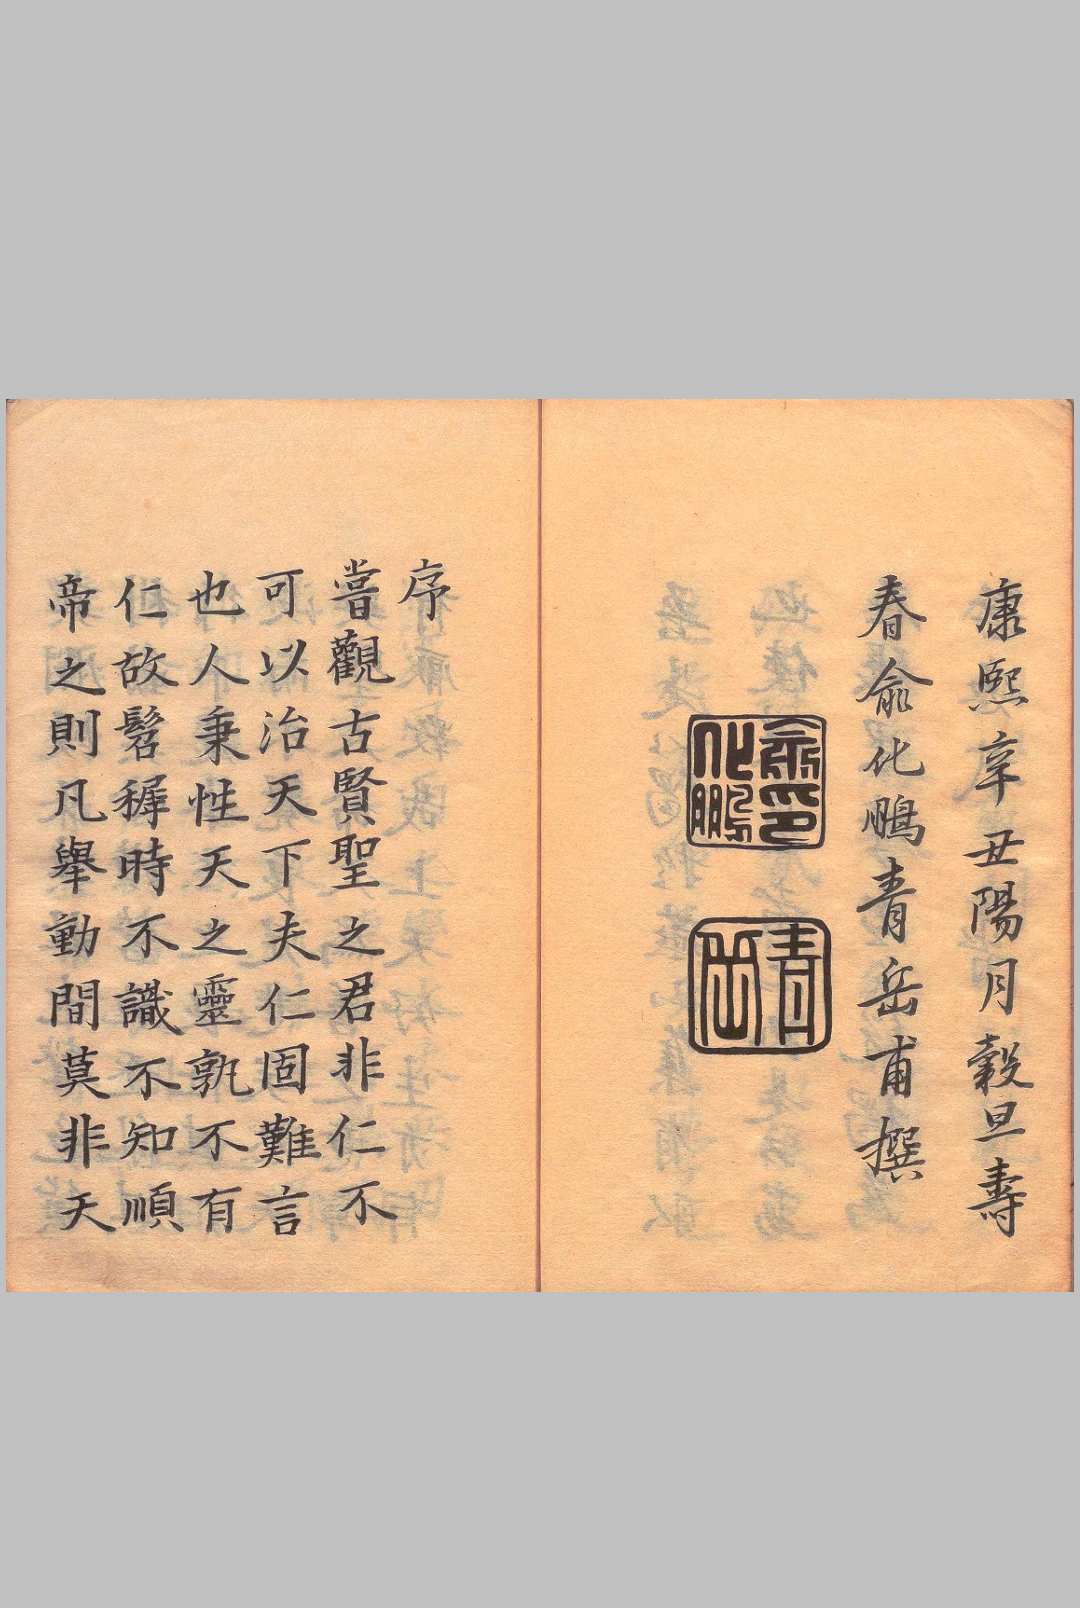 康熙辛丑陽月穀旦壽
春俞化鵬青岳甫撰
俞印
化鵬
青
岳
序
嘗觀古賢聖之君非仁不
可以治天下夫仁固難言
也人秉性天之靈孰不有
仁故髫穉時不識不知順
帝之則凡舉動間莫非天